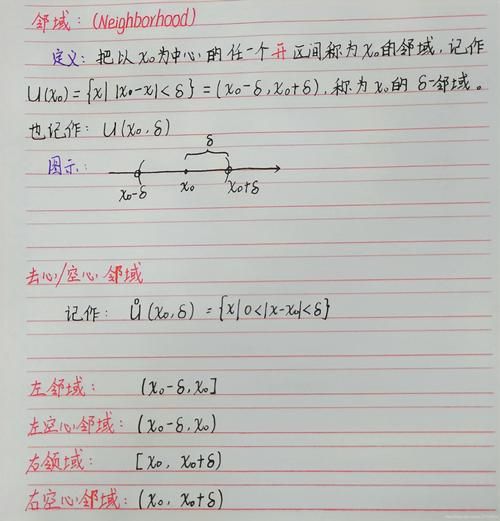 邻域：(Neighborhood)
定义：把以x₀为中心的任一个开区间称为x₀的邻域，记作
U(x₀)={x| |x₀-x|<δ}=(x₀-δ,x₀+δ)，称为x₀的δ-邻域。
也记作：U(x₀,δ)
图示：
δ
x₀-δ x₀ x₀+δ
去心/空心邻域
记作：Ů(x₀,δ)={x|0<|x-x₀|<δ}
左邻域：(x₀-δ,x₀]
左空心邻域：(x₀-δ,x₀)
右领域：[x₀,x₀+δ)
右空心邻域：(x₀,x₀+δ)